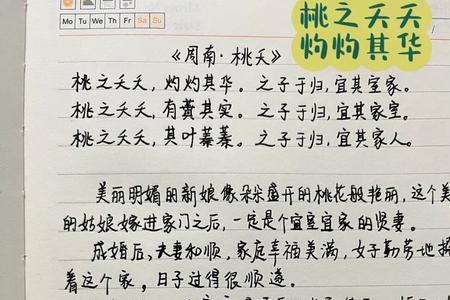 Mo Tu We Th Fr Sa Su
桃之夭夭
灼灼其华
《周南·桃夭》
桃之夭夭，灼灼其华。之子于归，宜其室家。
桃之夭夭，有蕡其实。之子于归，宜其家室。
桃之夭夭，其叶蓁蓁。之子于归，宜其家人。
美丽明媚的新娘像朵朵盛开的桃花般艳丽，这个美
的姑娘嫁进家门之后，一定是个宜室宜家的贤妻。
成婚后、夫妻和顺，家庭幸福美满，女子勤劳地操
着这个家，日子过得很顺遂。